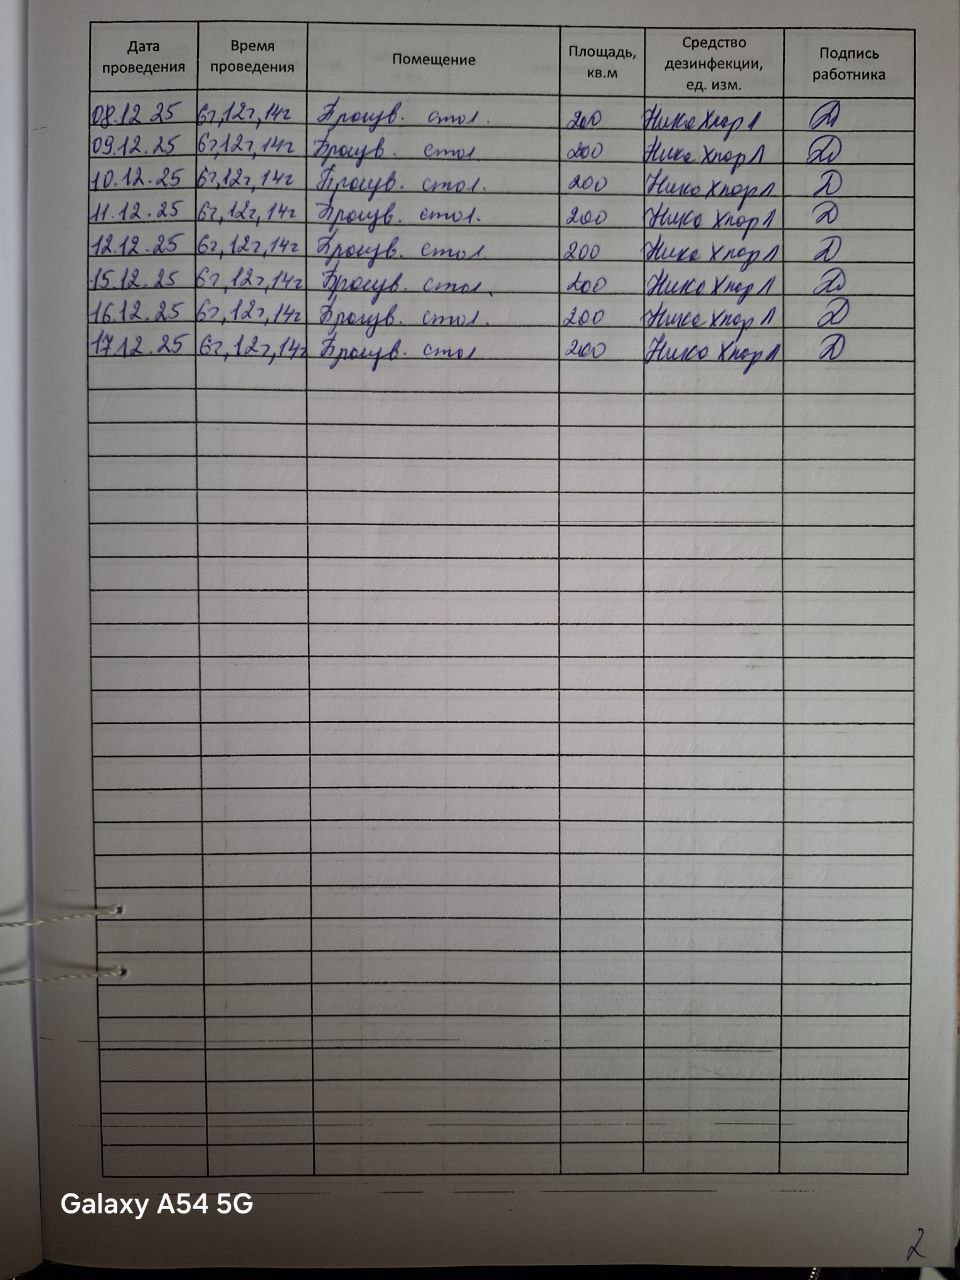 Дата проведения Время проведения Помещение Площадь, кв.м Средство дезинфекции, ед. изм. Подпись работника
08.12.25 6г,12г,14г Произв. стол. 200 Ника Хлор Л Д
09.12.25 6г,12г,14г Произв. стол 200 Ника Хлор Л Д
10.12.25 6г,12г,14г Произв. стол. 200 Ника Хлор Л Д
11.12.25 6г,12г,14г Произв. стол. 200 Ника Хлор Л Д
12.12.25 6г,12г,14г Произв. стол 200 Ника Хлор Л Д
15.12.25 6г,12г,14г Произв. стол. 200 Ника Хлор Л Д
16.12.25 6г,12г,14г Произв. стол. 200 Ника Хлор Л Д
17.12.25 6г,12г,14г Произв. стол 200 Ника Хлор Л Д
Galaxy A54 5G
2